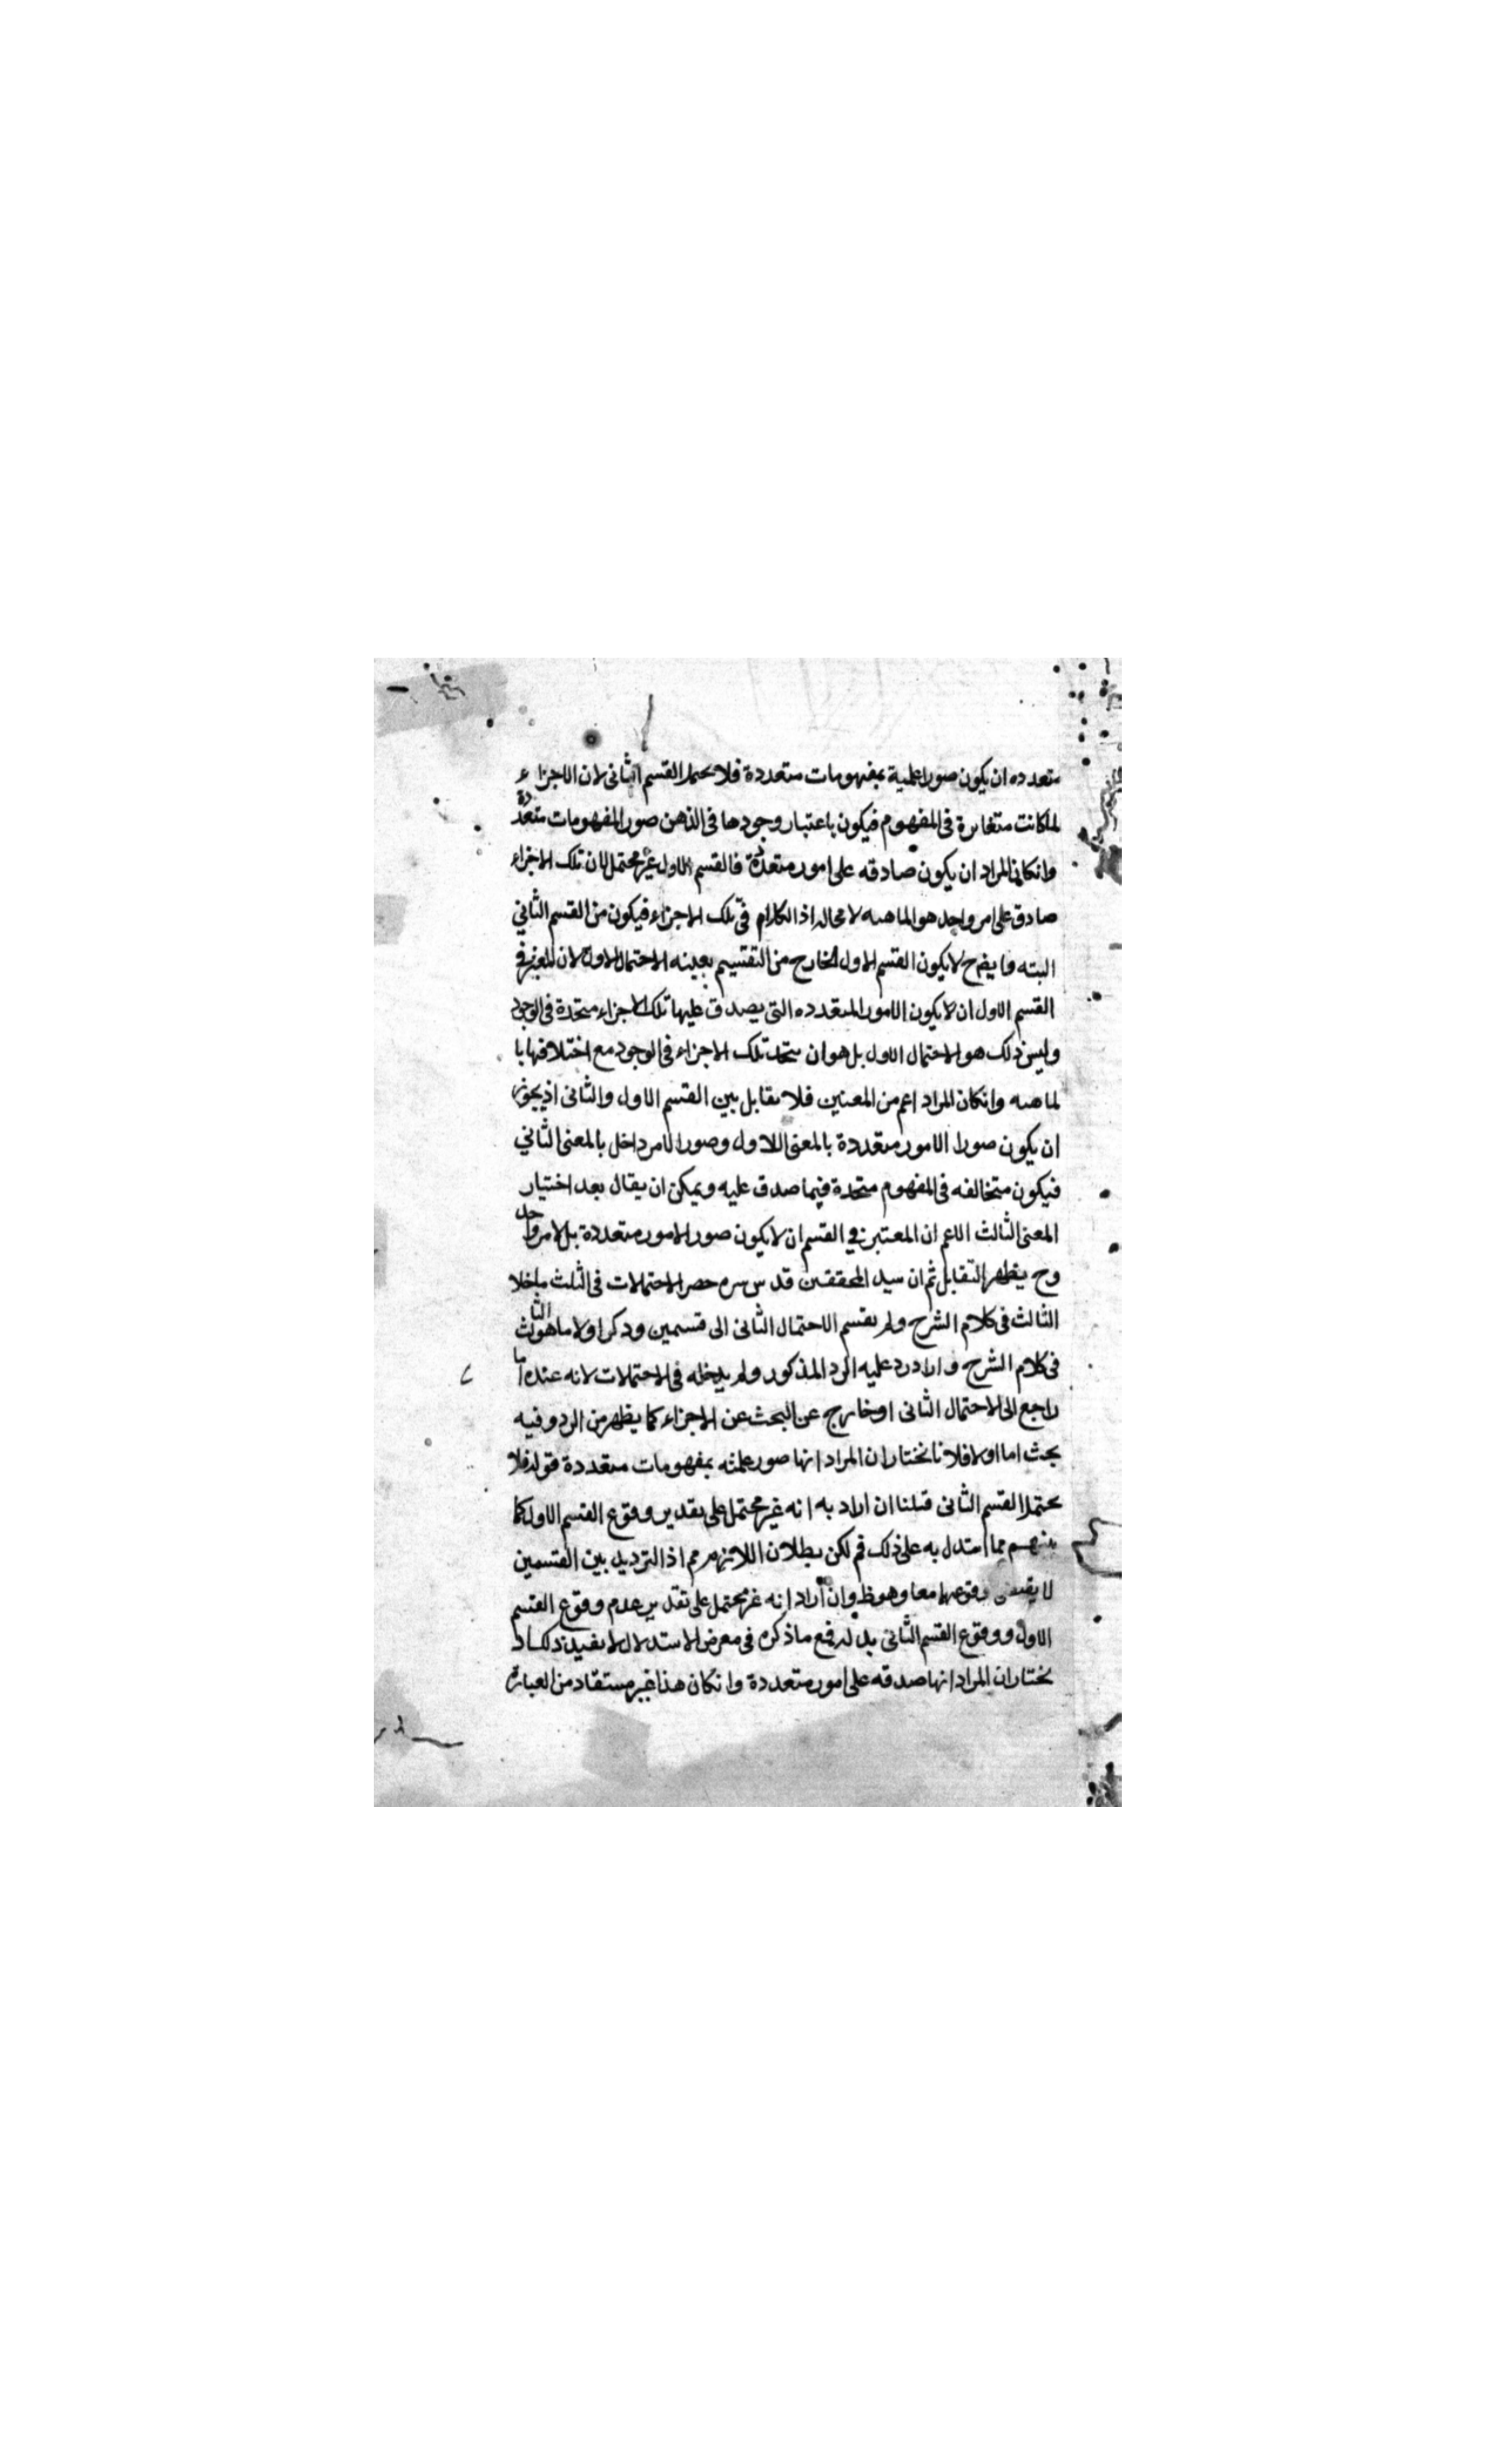 متعدده ان يكون صورا علمية بمفهومات متعددة فلا يحتمل القسم الثانى لان الاجزاء
لما كانت متغايرة فى المفهوم فيكون باعتبار وجودها فى الذهن صور المفهومات متعددة
وانكان المراد ان يكون صادقه على امور متعددة فالقسم الاول غير محتمل لان تلك الاجزاء
صادق على امر واحد هو الماهيه لا محاله اذ الكلام فى تلك الاجزاء فيكون من القسم الثاني
البته وايض ح لا يكون القسم الاول الخارج من التقسيم بعينه الاحتمال الاول لان المعتبر في
القسم الاول ان لا يكون الامور المتعدده التى يصدق عليها تلك الاجزاء متحدة فى الوجود
وليس ذلك هو الاحتمال الاول بل هو ان يتحد تلك الاجزاء فى الوجود مع اختلافها با
لماهيه وانكان المراد اعم من المعنيين فلا تقابل بين القسم الاول والثانى اذ يجوز
ان يكون صورا الامور متعددة بالمعنى الاول وصورا لامر داخل بالمعنى الثاني
فيكون متخالفه فى المفهوم متحدة فيما صدق عليه ويمكن ان يقال بعد اختيار
المعنى الثالث الاعم ان المعتبر في القسم ان لا يكون صور الامور متعددة بل لامر واحد
وح يظهر التقابل ثم ان سيد المحققين قدس سره حصر الاحتمالات فى الثلث باخلا
الثالث فى كلام الشرح ولم يقسم الاحتمال الثانى الى قسمين وذكر اولا ما هو الثالث
فى كلام الشرح و اراد رد عليه الرد المذكور ولم يدخله فى الاحتمالات لانه عنده اما
راجع الى الاحتمال الثانى او خارج عن البحث عن الاجزاء كما يظهر من الرد وفيه
بحث اما اولا فلانا نختار ان المراد انها صور علميه بمفهومات متعددة قوله فلا
يحتمل القسم الثانى قلنا ان اراد به انه غير محتمل على تقدير وقوع القسم الاول كما
يفهم مما استدل به على ذلك فم لكن بطلان اللازم مم اذ الترديد بين القسمين
لا يقتضى وقوعهما معا وهو ظ وان اراد انه غير محتمل على تقدير عدم وقوع القسم
الاول ووقوع القسم الثانى بدله رفع ما ذكره فى معرض الاستدلال لا يفيد ذلك
نختار ان المراد انها صدقه على امور متعددة وانكان هذا غير مستفاد من العبارة